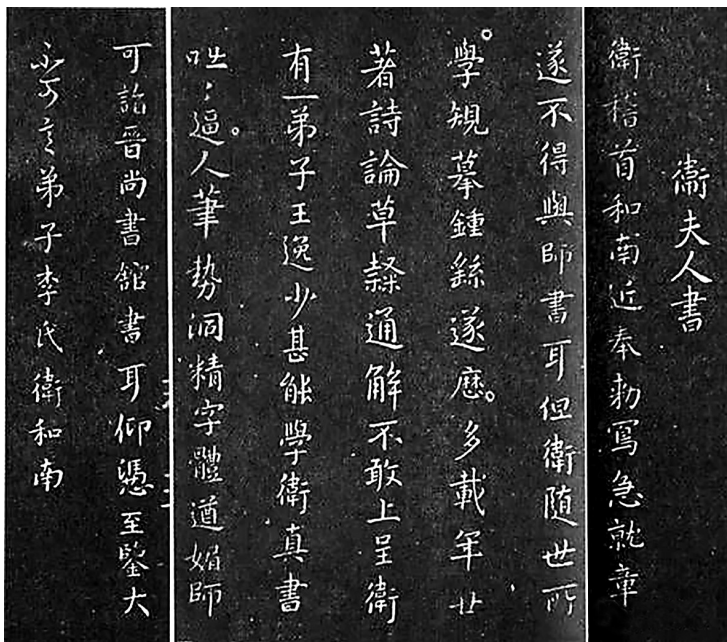 衞夫人書
衛稽首和南近奉勑寫急就章
遂不得與師書耳但衛隨世所
學規摹鍾繇遂歷多載年廿
著詩論草隸通解不敢上呈衛
有一弟子王逸少甚能學衛真書
咄〻逼人筆勢洞精字體遒媚師
可詣晉尚書舘書耳仰憑至鑒大
不可言弟子李氏衛和南